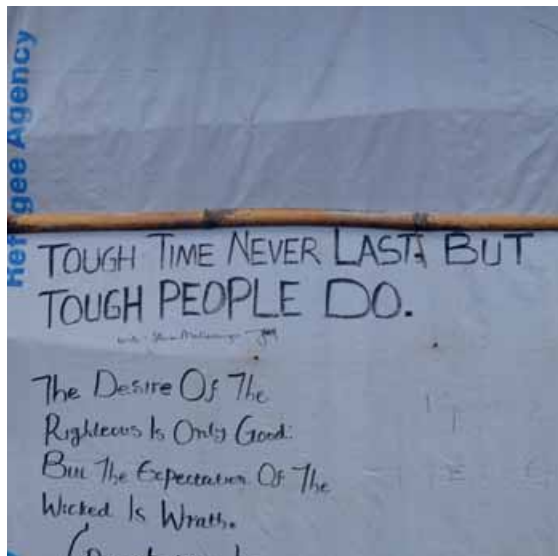 Refugee Agency
TOUGH TIME NEVER LAST, BUT
TOUGH PEOPLE DO.
The Desire Of The
Righteous Is Only Good.
But The Expectation Of The
Wicked Is Wrath.